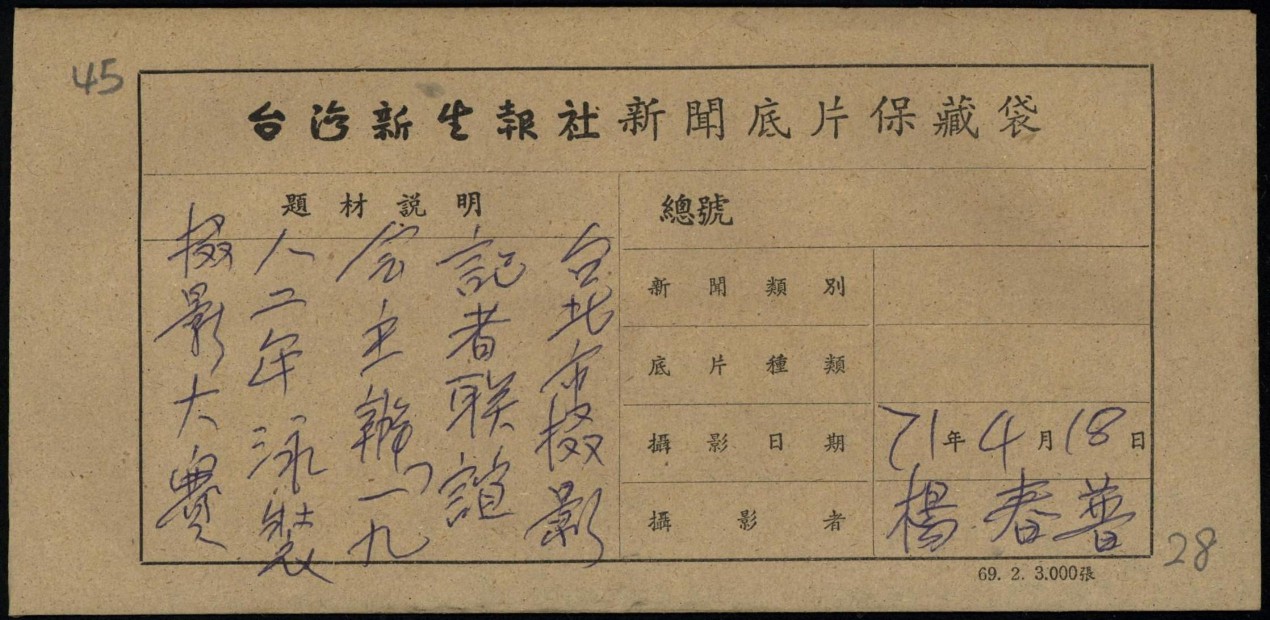 45
台湾新生報社新聞底片保藏袋
題材說明
台北市摄影
記者联誼
会主辦「一九
八二年泳裝
摄影大賽
總號
新聞類別
底片種類
攝影日期 71年4月18日
攝影者 楊春普
28
69. 2. 3.000張